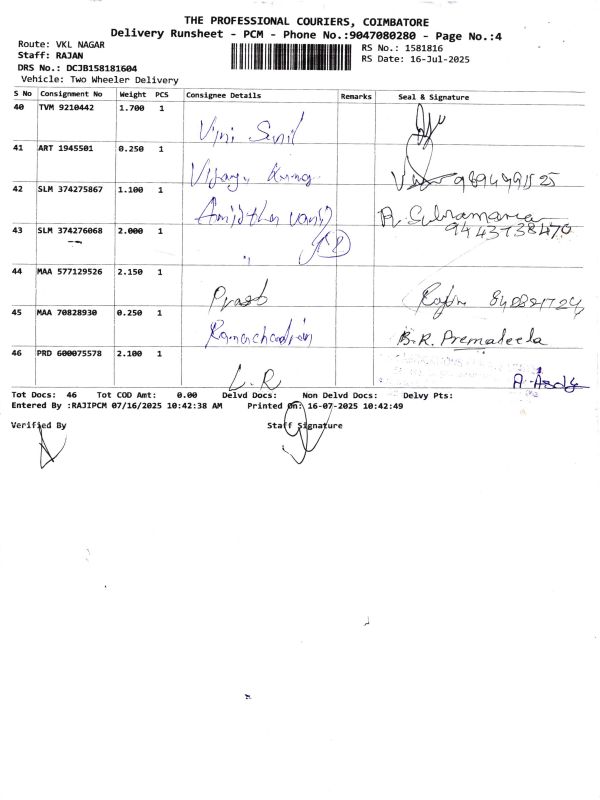 THE PROFESSIONAL COURIERS, COIMBATORE
Delivery Runsheet - PCM - Phone No.:9047080280 - Page No.:4
Route: VKL NAGAR
Staff: RAJAN
DRS No.: DCJB158181604
Vehicle: Two Wheeler Delivery
RS No.: 1581816
RS Date: 16-Jul-2025
S No Consignment No Weight PCS Consignee Details Remarks Seal & Signature
40 TVM 9210442 1.700 1
41 ART 1945501 0.250 1
42 SLM 374275867 1.100 1
43 SLM 374276068 2.000 1
44 MAA 577129526 2.150 1
45 MAA 70828930 0.250 1 Ramachandran B.R. Premaleela
46 PRD 600075578 2.100 1 L.R
Tot Docs: 46 Tot COD Amt: 0.00 Delvd Docs: Non Delvd Docs: Delvy Pts:
Entered By :RAJIPCM 07/16/2025 10:42:38 AM Printed On: 16-07-2025 10:42:49
Verified By Staff Signature